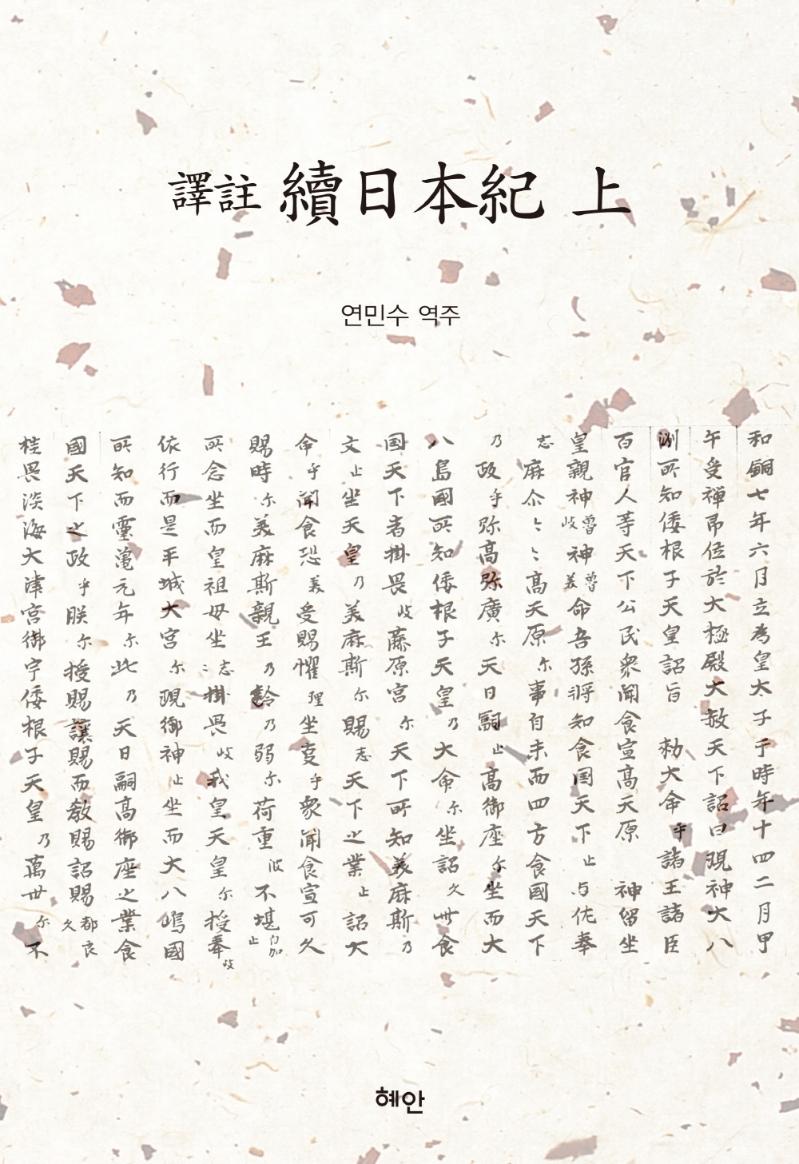 譯註 續日本紀 上
연민수 역주
和銅七年六月立為皇太子于時年十四二月甲
午受禪卽位於大極殿大赦天下詔曰現神大八
洲所知倭根子天皇詔旨 勅大命乎諸王諸臣
百官人等天下公民衆聞食宣高天原 神留坐
皇親神魯岐神魯美命吾孫將知食国天下止与佐奉
志麻尒ゝゝ高天原尓事自未而四方食國天下
乃政乎弥高弥廣尓天日嗣止高御座尓坐而大
八島國所知倭根子天皇乃大命尓坐詔久此食
国天下者掛畏岐藤原宮尓天下所知美麻斯乃
父止坐天皇乃美麻斯尓賜志天下之業止詔大
命乎聞食恐美受賜懼理坐事乎衆聞食宣可久
賜時尓美麻斯親王乃齡乃弱尓荷重波不堪自加止
所念坐而皇祖母坐ゝ志掛畏岐我皇天皇尓授奉岐
依行而是平城大宮尓現御神止坐而大八嶋國
所知而靈龜元年尓此乃天日嗣高御座之業食
國天下之政乎朕尓授賜讓賜而敎賜詔賜都良久
挂畏淡海大津宮御宇倭根子天皇乃萬世尓不
혜안